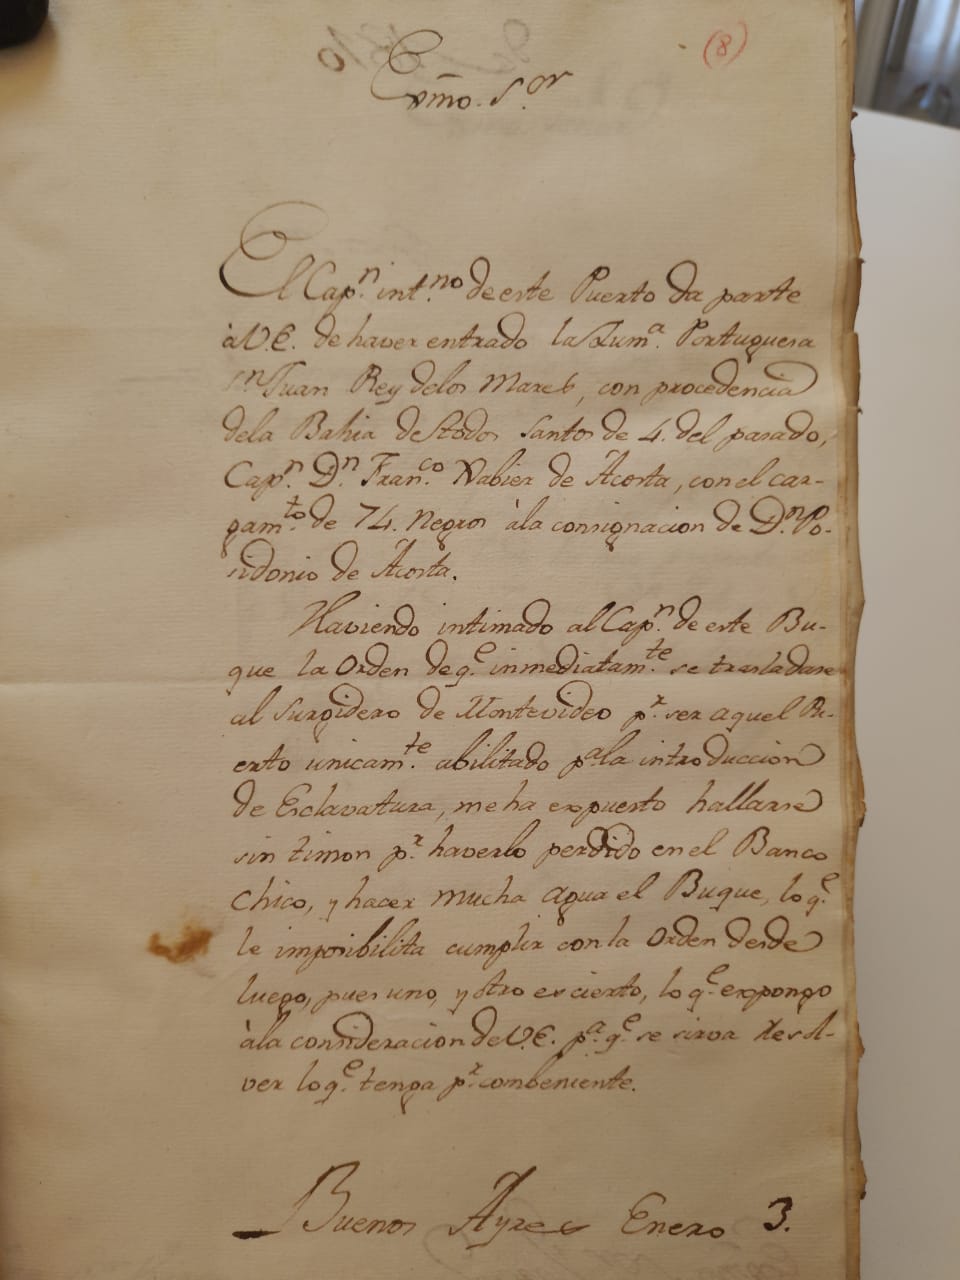 (8)
Exmo. S.or
El Cap.n int.no de este Puerto da parte
à V.E. de haver entrado la Zum.a Portuguesa
sn Juan Rey delos Mares, con procedencia
dela Bahia de Stodos Santos de 4. del pasado,
Cap.n D.n Fran.co Xabier de Acosta, con el car-
gam.to de 74. Negros àla consignacion de D.n Po-
sidonio de Acosta.
Haviendo intimado al Cap.n de este Bu-
que la Orden de q.e inmediatam.te se trasladase
al surgidero de Montevideo p.r ser aquel Pu-
erto unicam.te abilitado p.a la introduccion
de Esclavatura, me ha expuesto hallarse
sin timon p.r haverlo perdido en el Banco
Chico, y hacer mucha agua el Buque, lo q.e
le imposibilita cumplir con la Orden desde
luego, pues uno, y otro es cierto, lo q.e expongo
àla consideracion de V.E. p.a q.e se sirva resol-
ver lo q.e tenga p.r combeniente.
Buenos Ayres Enero 3.